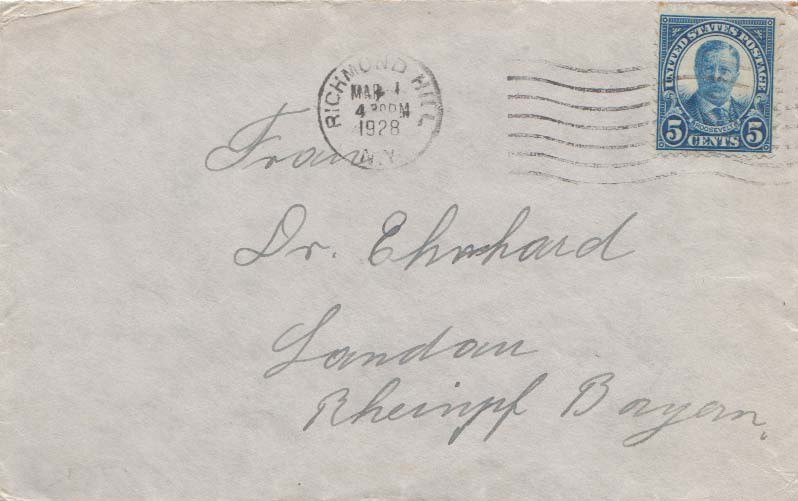 RICHMOND HILL
MAR 1
4 30PM
1928
N.Y.
UNITED STATES POSTAGE
ROOSEVELT
5 CENTS 5
Frau
Dr. Ehrhard
Landau
Rheinpf Bayern.